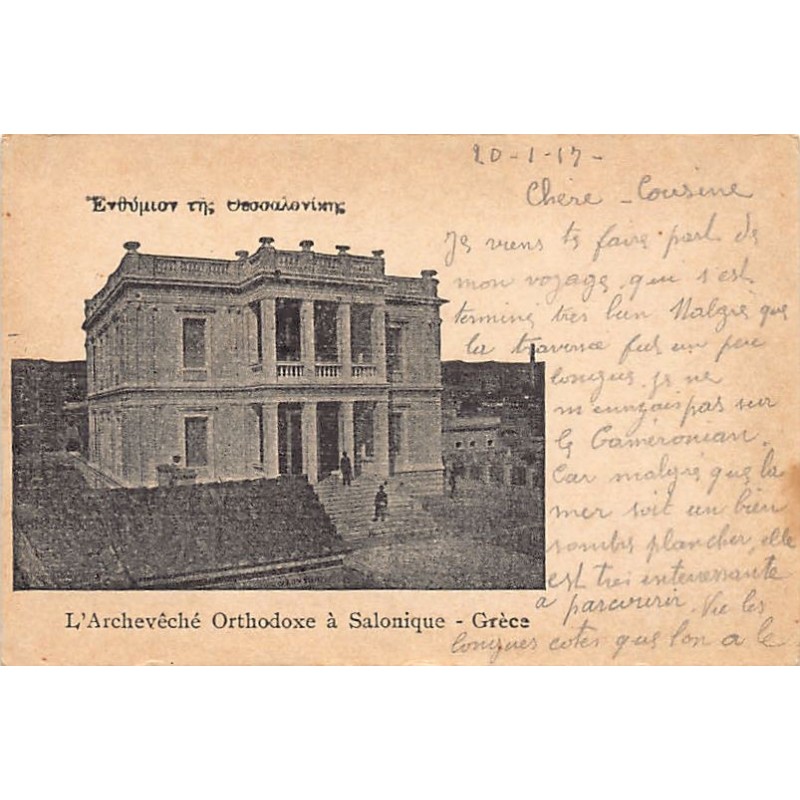 20-1-17-
Ἐνθύμιον τῆς Θεσσαλονίκης
Chère - Cousine
Je viens te faire part de
mon voyage, qui s'est
terminé très bien Malgré que
la traversée fut un peu
longue, je ne
m'ennuyais pas sur
le Caméronian.
Car malgré que la
mer soit un bien
sombre plancher, elle
est très interressante
a parcourir. Vu les
longues cotes que l'on a le
L'Archevêché Orthodoxe à Salonique - Grèce